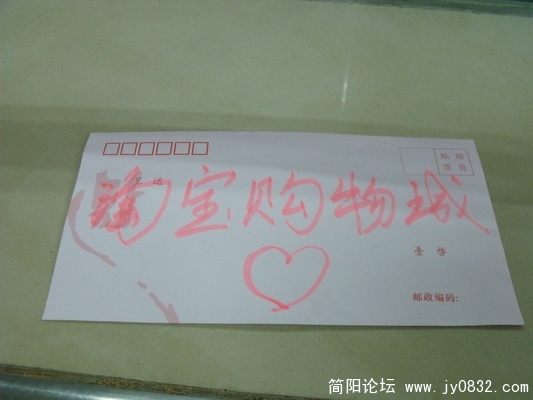 贴邮
票处
呈送
淘宝购物城
台启
邮政编码:
简阳论坛 www.jy0832.com